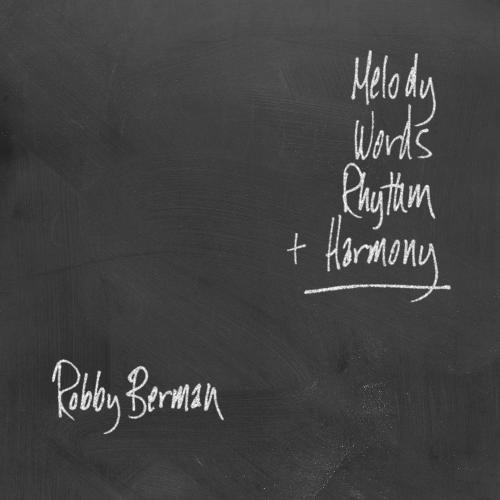 Melody
Words
Rhythm
+ Harmony
Robby Berman